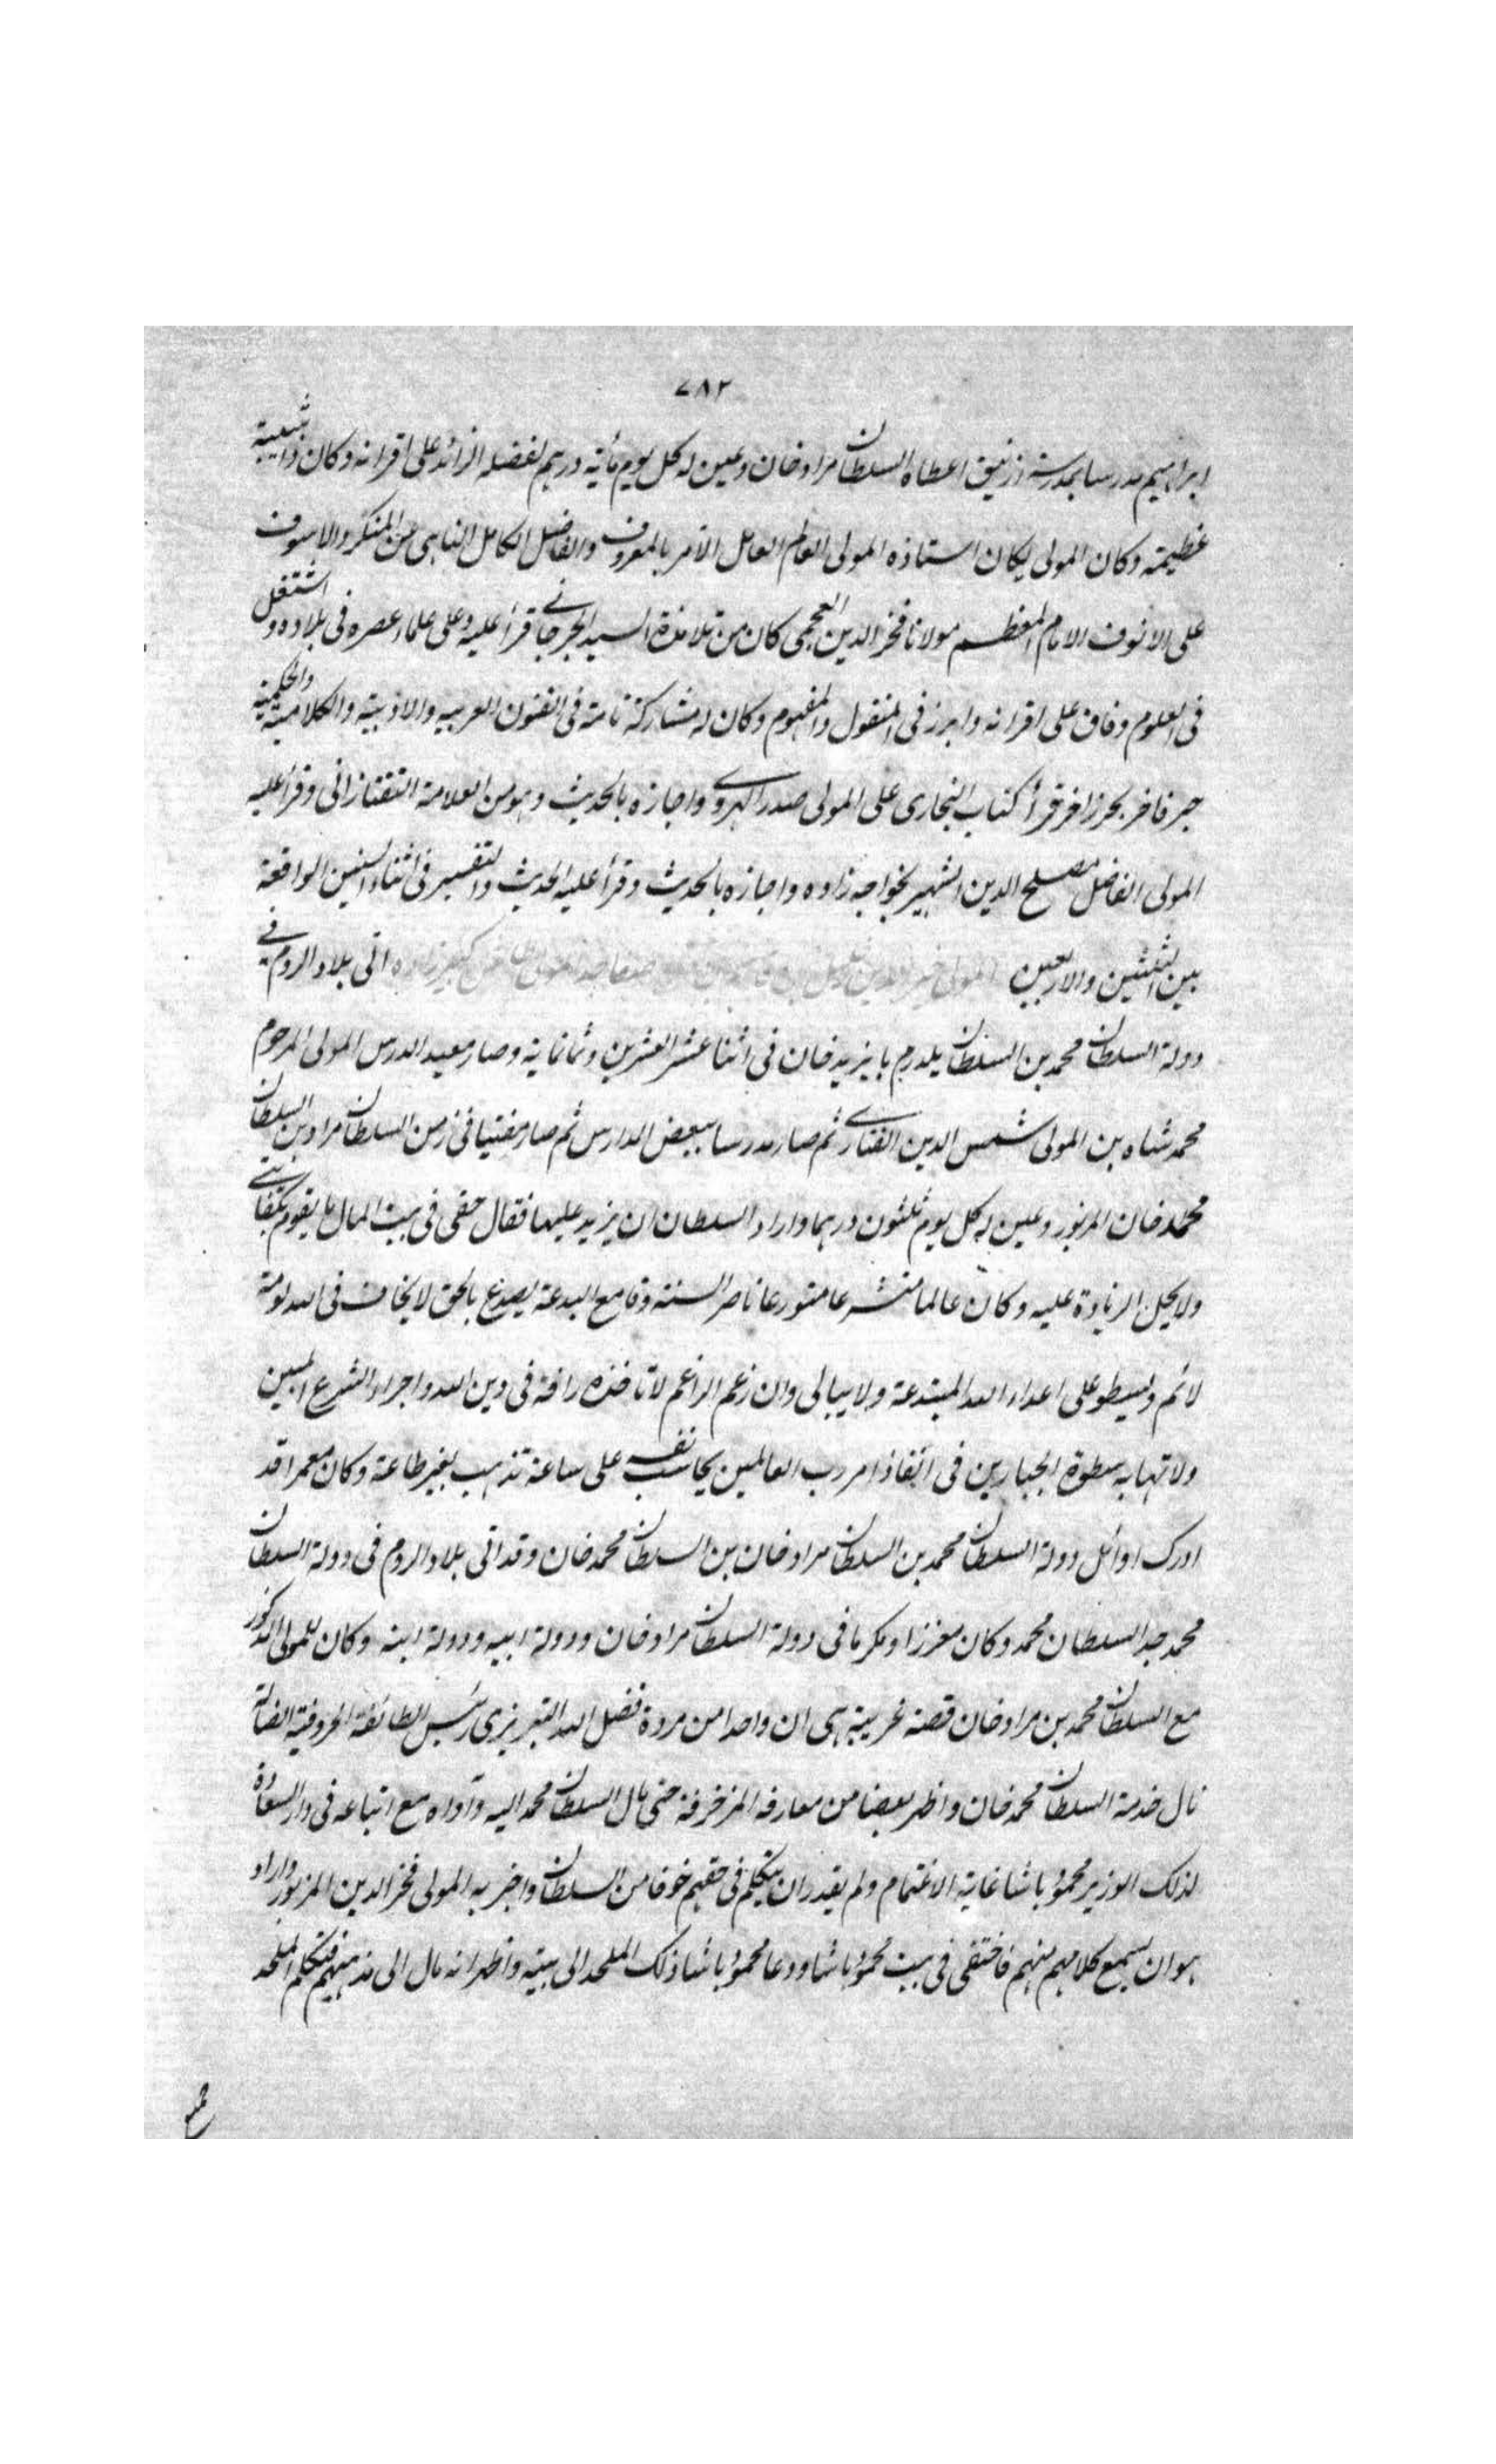 ٧٨٢
ابراهيم مدرسا بمدرسة ازنيق اعطاه السلطان مراد خان وعين له كل يوم مأية درهم لفضله الزائد على اقرانه وكان ذا شيبة
عظيمة وكان المولى يكان استاذه المولى العالم العامل الآمر بالمعروف والفاضل الكامل الناهى عن المنكر والاسوف
على الانوف الامام المعظم مولانا فخر الدين العجمى كان من تلامذة السيد الجرجاني قرأ عليه وعلى علماء عصره فى بلاده واشتغل
فى العلوم وفاق على اقرانه وابرز فى المنقول والمفهوم وكان له مشاركة تامة فى الفنون العربيه والادبية والكلامية والحكمية
حبر فاخر بحر زاخر قرأ كتاب البخارى على المولى صدر الهروى واجازه بالحديث وهو من العلامة التفتازانى وقرأ عليه
المولى الفاضل مصلح الدين الشهير بخواجه زاده واجازه بالحديث وقرأ عليه الحديث والتفسير فى اثناء السنين الواقعة
بين الثلثين والاربعين المولى خير الدين خليل بن اتى بلاد الروم في
دولة السلطان محمد بن السلطان يلدرم بايزيد خان فى اثنا عشر العشرين وثمانماية وصار معيد الدرس المولى المرحوم
محمد شاه بن المولى شمس الدين الفناري ثم صار مدرسا ببعض المدارس ثم صار مفتيا فى زمن السلطان مراد بن السلطان
محمد خان المزبور وعين له كل يوم ثلثون درهما واراد السلطان ان يزيد عليها فقال حقى فى بيت المال ما يقوم بكفايتي
ولا يحل الزيادة عليه وكان عالما متشرعا متورعا ناصر السنة وقامع البدعة يصدع بالحق لا يخاف فى الله لومة
لائم ويسطو على اعداء الله المبتدعة ولا يبالى وان زعم الزاعم لا تاخذه رافة فى دين الله واجراء الشرع المبين
ولا تهابه سطوة الجبارين فى انفاذ امر رب العالمين يحاسب نفسه على ساعة تذهب بغير طاعة وكان معمرا قد
ادرك اوائل دولة السلطان محمد بن السلطان مراد خان بن السلطان محمد خان وقد اتى بلاد الروم فى دولة السلطان
محمد جد السلطان محمد وكان معززا ومكرما فى دولة السلطان مراد خان ودولة ابيه ودولة ابنه وكان للمولى المذكور
مع السلطان محمد بن مراد خان قصة غريبة هى ان واحدا من مردة فضل الله التبريزى رئيس الطائفة الحروفية الضالة
نال خدمة السلطان محمد خان واظهر بعضا من معارفه المزخرفة حتى مال السلطان محمد اليه وآواه مع اتباعه فى دار السعادة
لذلك الوزير محمود باشا غاية الاغتمام ولم يقدر ان يتكلم فى حقهم خوفا من السلطان واخبر به المولى فخر الدين المزبور واراد
هو ان يسمع كلامهم منهم فاختفى فى بيت محمود باشا ودعا محمود باشا ذلك الملحد الى بيته واظهر انه مال الى مذهبهم فتكلم الملحد